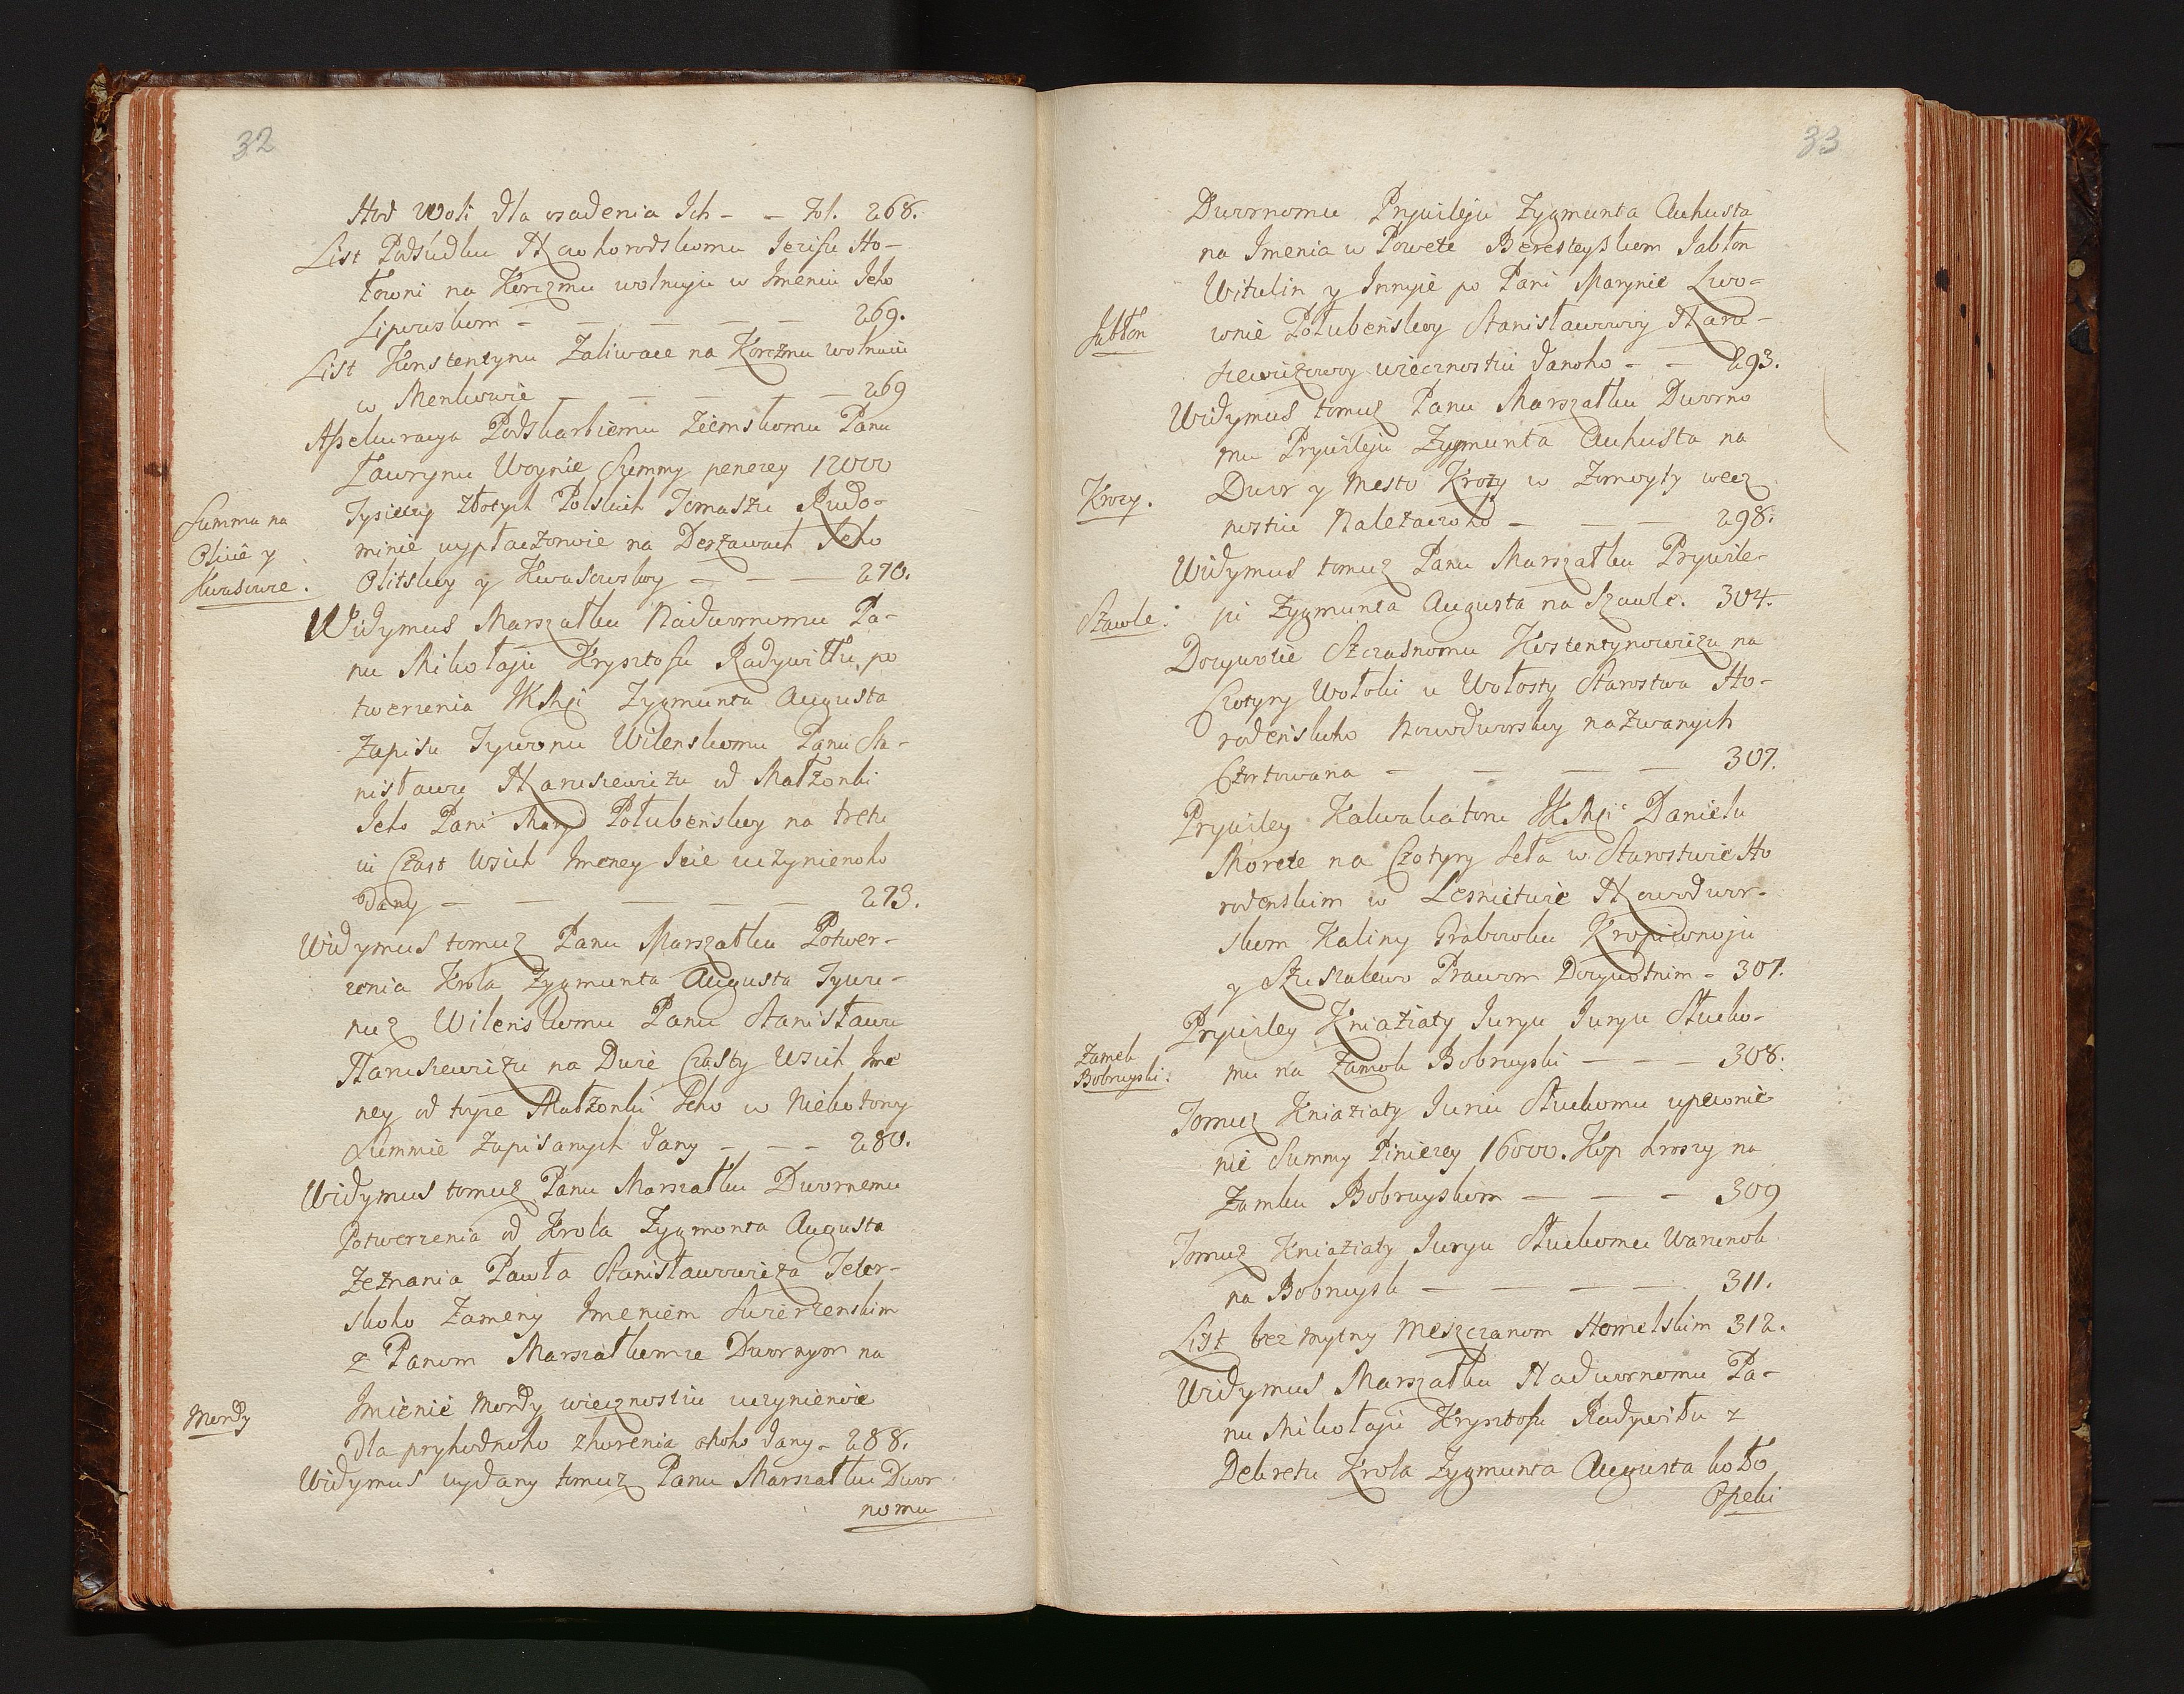 32
Hod Woli dla osadenia Ich - - Fol. 268.
List Podsudku Nowohorodskomu Jezifu Ho-
łowni na Korczmu wolnuju w Imeniu Jeho
Lipowskom - - - - - 269.
List Konstentynu Zaliwace na Korczmu wolnuiu
w Menkowie - - - - 269
Assekuracya Podskarbiemu Ziemskomu Panu
Ławrynu Woynie Summy penezey 12000
Summa na
Olicie y
Kwasowie.
Tysieczy złotych Polskich Tomaszu Rudo-
minie wypłaczonoie na Derzawach Jeho
Olitskoy y Kwasowskoy - - - 270.
Widymus Marszałku Nadwornomu Pa-
nu Mikołaju Krysztofu Radywiłłu, po
twerzenia JKMsi Zygmunta Augusta
Zapisu Tywonu Wilenskomu Panu Sta-
nisławu Naruszewiczu od Małżonki
Jeho Pani Maryi Połubenskoy na tretu
iu Czast Wsich Imeney Jeie uczynienoho
Dany - - - - - 273.
Widymus tomuz Panu Marszałku Potwer-
zenia Krola Zygmunta Augusta Tywu-
nuz Wilenskomu Panu Stanisławu
Naruszewiczu na Dwie Czasty Wsich Ime
ney od toyze Małżonki Jeho w Niekotory
Summie Zapisanych dany - - - 280.
Widymus tomuz Panu Marszałku Dwornemu
Potwerzenia od Krola Zygmonta Augusta
Zeznania Pawła Stanisławowicza
skoho Zameny Imeniem
z Panom Marszałkom ze Dwornym na
Mordy
Imienie Mordy wiecznostiu uczynienoie
dla pryhodnoho zhorenia onoho dany - 288.
Widymus wydany tomuz Panu Marszałku Dwor
nomu
33
Dwornomu Prywileju Zygmunta Auhusta
na Imenia w Powete Beresteyskom Jabłon
Witulin y Innyie po Pani Marynie Lwo-
Jabłon
wnie Połubenskoy Stanisławowoy Naru-
szewiczowoy wiecznostiu danoho - - 293.
Widymus tomuz Panu Marszałku Dworno
mu Prywileju Zygmunta Auhusta na
Krozy.
Dwor y Mesto Krozy w Zomoyty wecz
nostiu Nalezaczoho - - - 298.
Widymus tomuz Panu Marszałku Prywile-
Szawle.
ju Zygmunta Augusta na Szawle. 304.
Dozywotie Szczasnomu Kostentynowiczu na
Czotyry Wołoki u Wołosty Starostwa Ho-
rodenskoho Nowodworskoy nazwanych
Czortowana - - - - 307.
Prywiley Kalwakatoru JKMsi Danielu
Morete na Czotyry Seła w Starostwie Ho
rodenskim w Lesnictwie Nowodwor-
skom Kaliny Grabowku Kropiwnoju
y Szuszalewo Prawom Dozywotnim - 307.
Prywiley Kniaziaty Juryu Juryu Słucko-
Zamek
Bobruyski.
mu na Zamok Bobruyski - - - 308.
Tomuz Kniaziaty Juriu Słuckomu upewnie
nie Summy Piniezey 16000. Kop hroszy na
Zamku Bobruyskom - - - 309
Tomuz Kniaziaty Juryu Słuckomu Warunok
na Bobruysk - - - - 311.
List bez mytny Meszczanom Homelskim 312.
Widymus Marszałku Nadwornomu Pa-
nu Mikołaju Krysztofu Radywiłu z
Dekretu Krola Zygmunta Augusta koło
Opeki